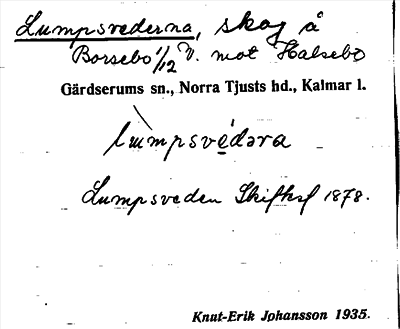 Lumpsvederna, skog å
Borsebo 1/12 V. mot Halsebo
Gärdserums sn., Norra Tjusts hd., Kalmar l.
lumpsvédəra
Lumpsveden Skifksf 1878.
Knut-Erik Johansson 1935.